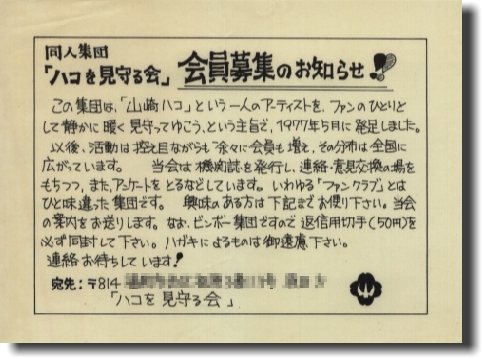 同人集団
「ハコを見守る会」 会員募集のお知らせ!
この集団は、「山崎ハコ」という一人のアーティストを、ファンのひとりと
して静かに暖く見守ってゆこう、という主旨で、1977年5月に発足しました。
以後、活動は控え目ながらも徐々に会員も増え、その分布は全国に
広がています。 当会は機関誌を発行し、連絡・意見交換の場を
もちつつ、また、アンケートをとるなどしています。いわゆる「ファンクラブ」とは
ひと味違った集団です。 興味のある方は下記までお便り下さい。当会
の案内をお送りします。なお、ビンボー集団ですので返信用切手(50円)を
必ず同封して下さい。ハガキによるものは御遠慮下さい。
連絡お待ちしています!
宛先:〒814
「ハコを見守る会」